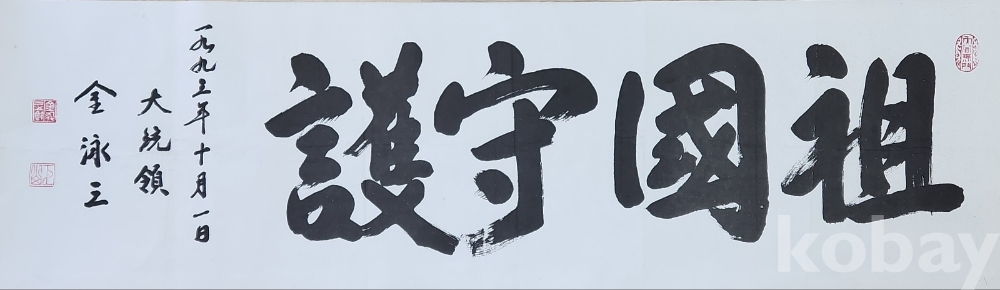 祖國守護
一九九三年十月一日
大統領
金泳三
kobay